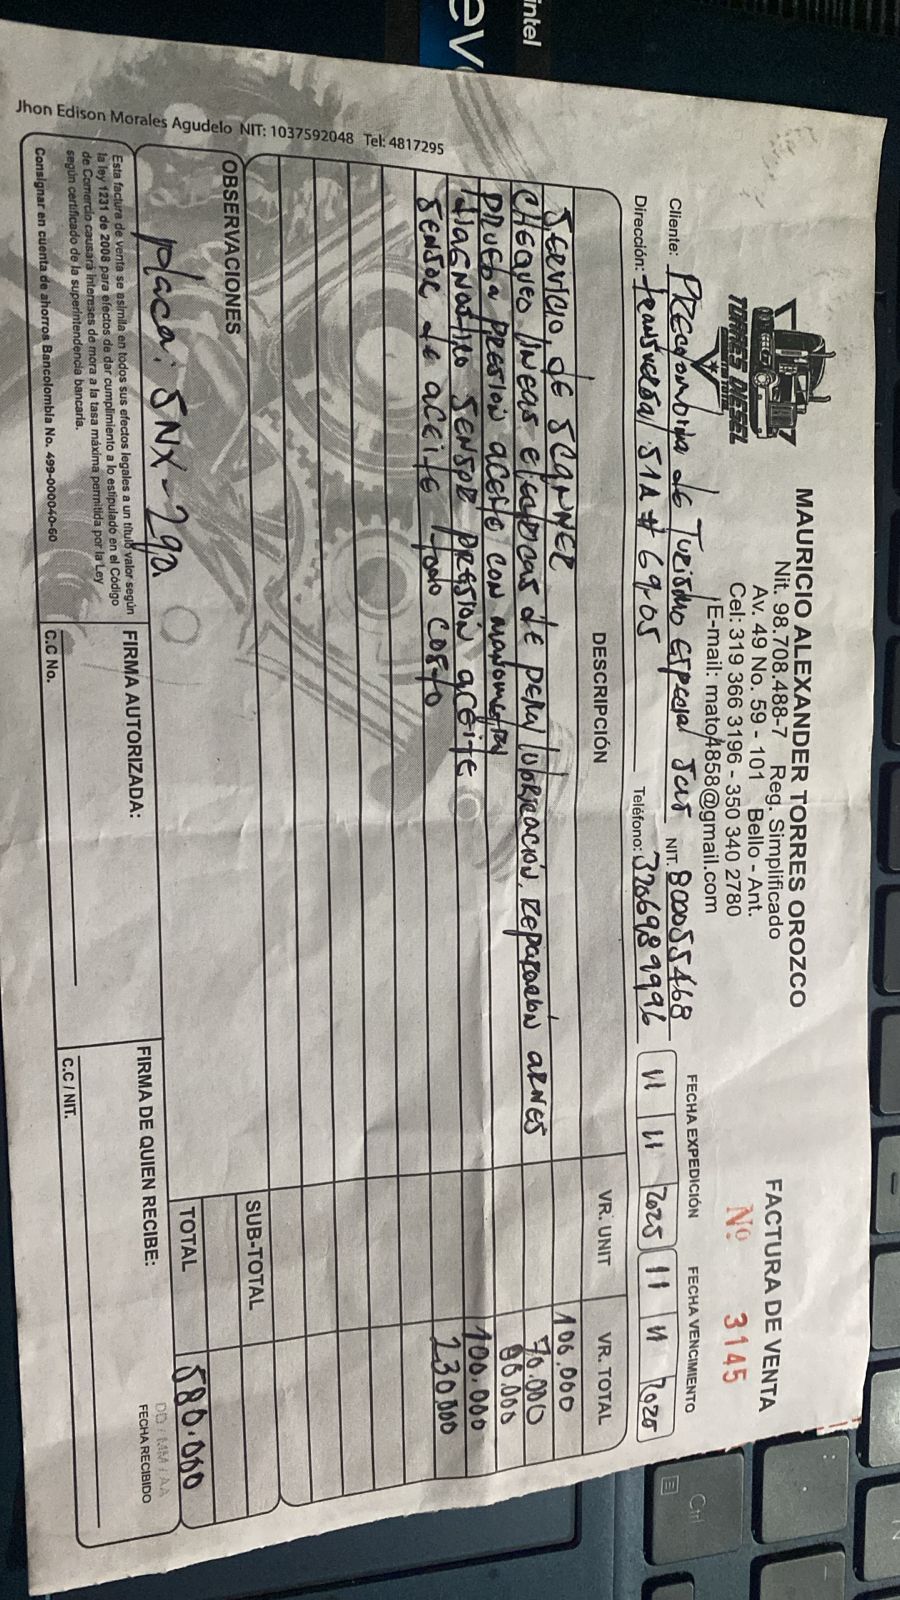 TORRES DIESEL
MAURICIO ALEXANDER TORRES OROZCO
Nit. 98.708.488-7 Reg. Simplificado
Av. 49 No. 59 - 101 Bello - Ant.
Cel: 319 366 3196 - 350 340 2780
E-mail: mato4858@gmail.com
FACTURA DE VENTA
No 3145
Cliente: de Turismo Especial SAS NIT. 800055468
Dirección: transversal 51A # 69-05 Teléfono: 3206989996
FECHA EXPEDICIÓN FECHA VENCIMIENTO
11 11 2025 11 11 2025
DESCRIPCIÓN VR. UNIT VR. TOTAL
Servicio de SCANNER 100.000
Chequeo lineas electricas de lubricación, reparación arnes 70.000
prueba presion aceite con manometro 80.000
diagnostico sensor presion aceite 100.000
sensor de aceite todo costo 230.000
OBSERVACIONES
SUB-TOTAL
placa: SNX-290
TOTAL 580.000
Esta factura de venta se asimila en todos sus efectos legales a un título valor según
la ley 1231 de 2008 para efectos de dar cumplimiento a lo estipulado en el Código
de Comercio causará intereses de mora a la tasa máxima permitida por la Ley
según certificado de la superintendencia bancaria.
Consignar en cuenta de ahorros Bancolombia No. 499-000040-60
FIRMA AUTORIZADA:
C.C No.
FIRMA DE QUIEN RECIBE:
C.C / NIT.
DD / MM / AA
FECHA RECIBIDO
Jhon Edison Morales Agudelo NIT: 1037592048 Tel: 4817295
intel
Ctrl